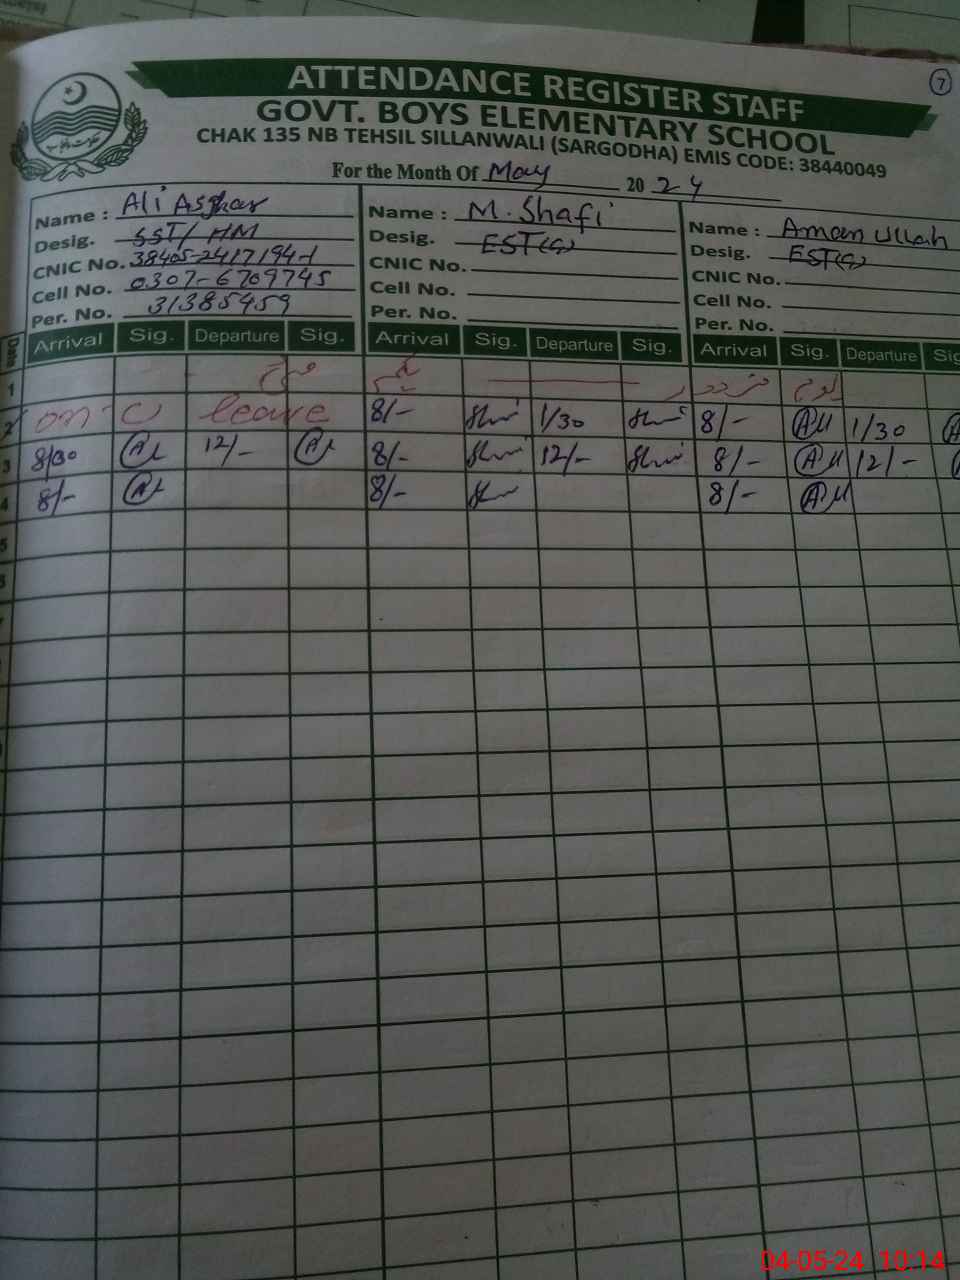 7
ATTENDANCE REGISTER STAFF
GOVT. BOYS ELEMENTARY SCHOOL
CHAK 135 NB TEHSIL SILLANWALI (SARGODHA) EMIS CODE: 38440049
For the Month Of May 2024
Name : Ali Asghar Name : M. Shafi Name : Aman Ullah
Desig. SST/HM Desig. EST(G) Desig. EST(G)
CNIC No. 38405-2417194-1 CNIC No. CNIC No.
Cell No. 0307-6709745 Cell No. Cell No.
Per. No. 31385459 Per. No. Per. No.
Date Arrival Sig. Departure Sig. Arrival Sig. Departure Sig. Arrival Sig. Departure Sig
1
2 on C leave 8/- 1/30 8/- AU 1/30
3 8/30 12/- 8/- 12/- 8/- AU 12/-
4 8/- 8/- 8/- AU
5
04-05-24 10:14